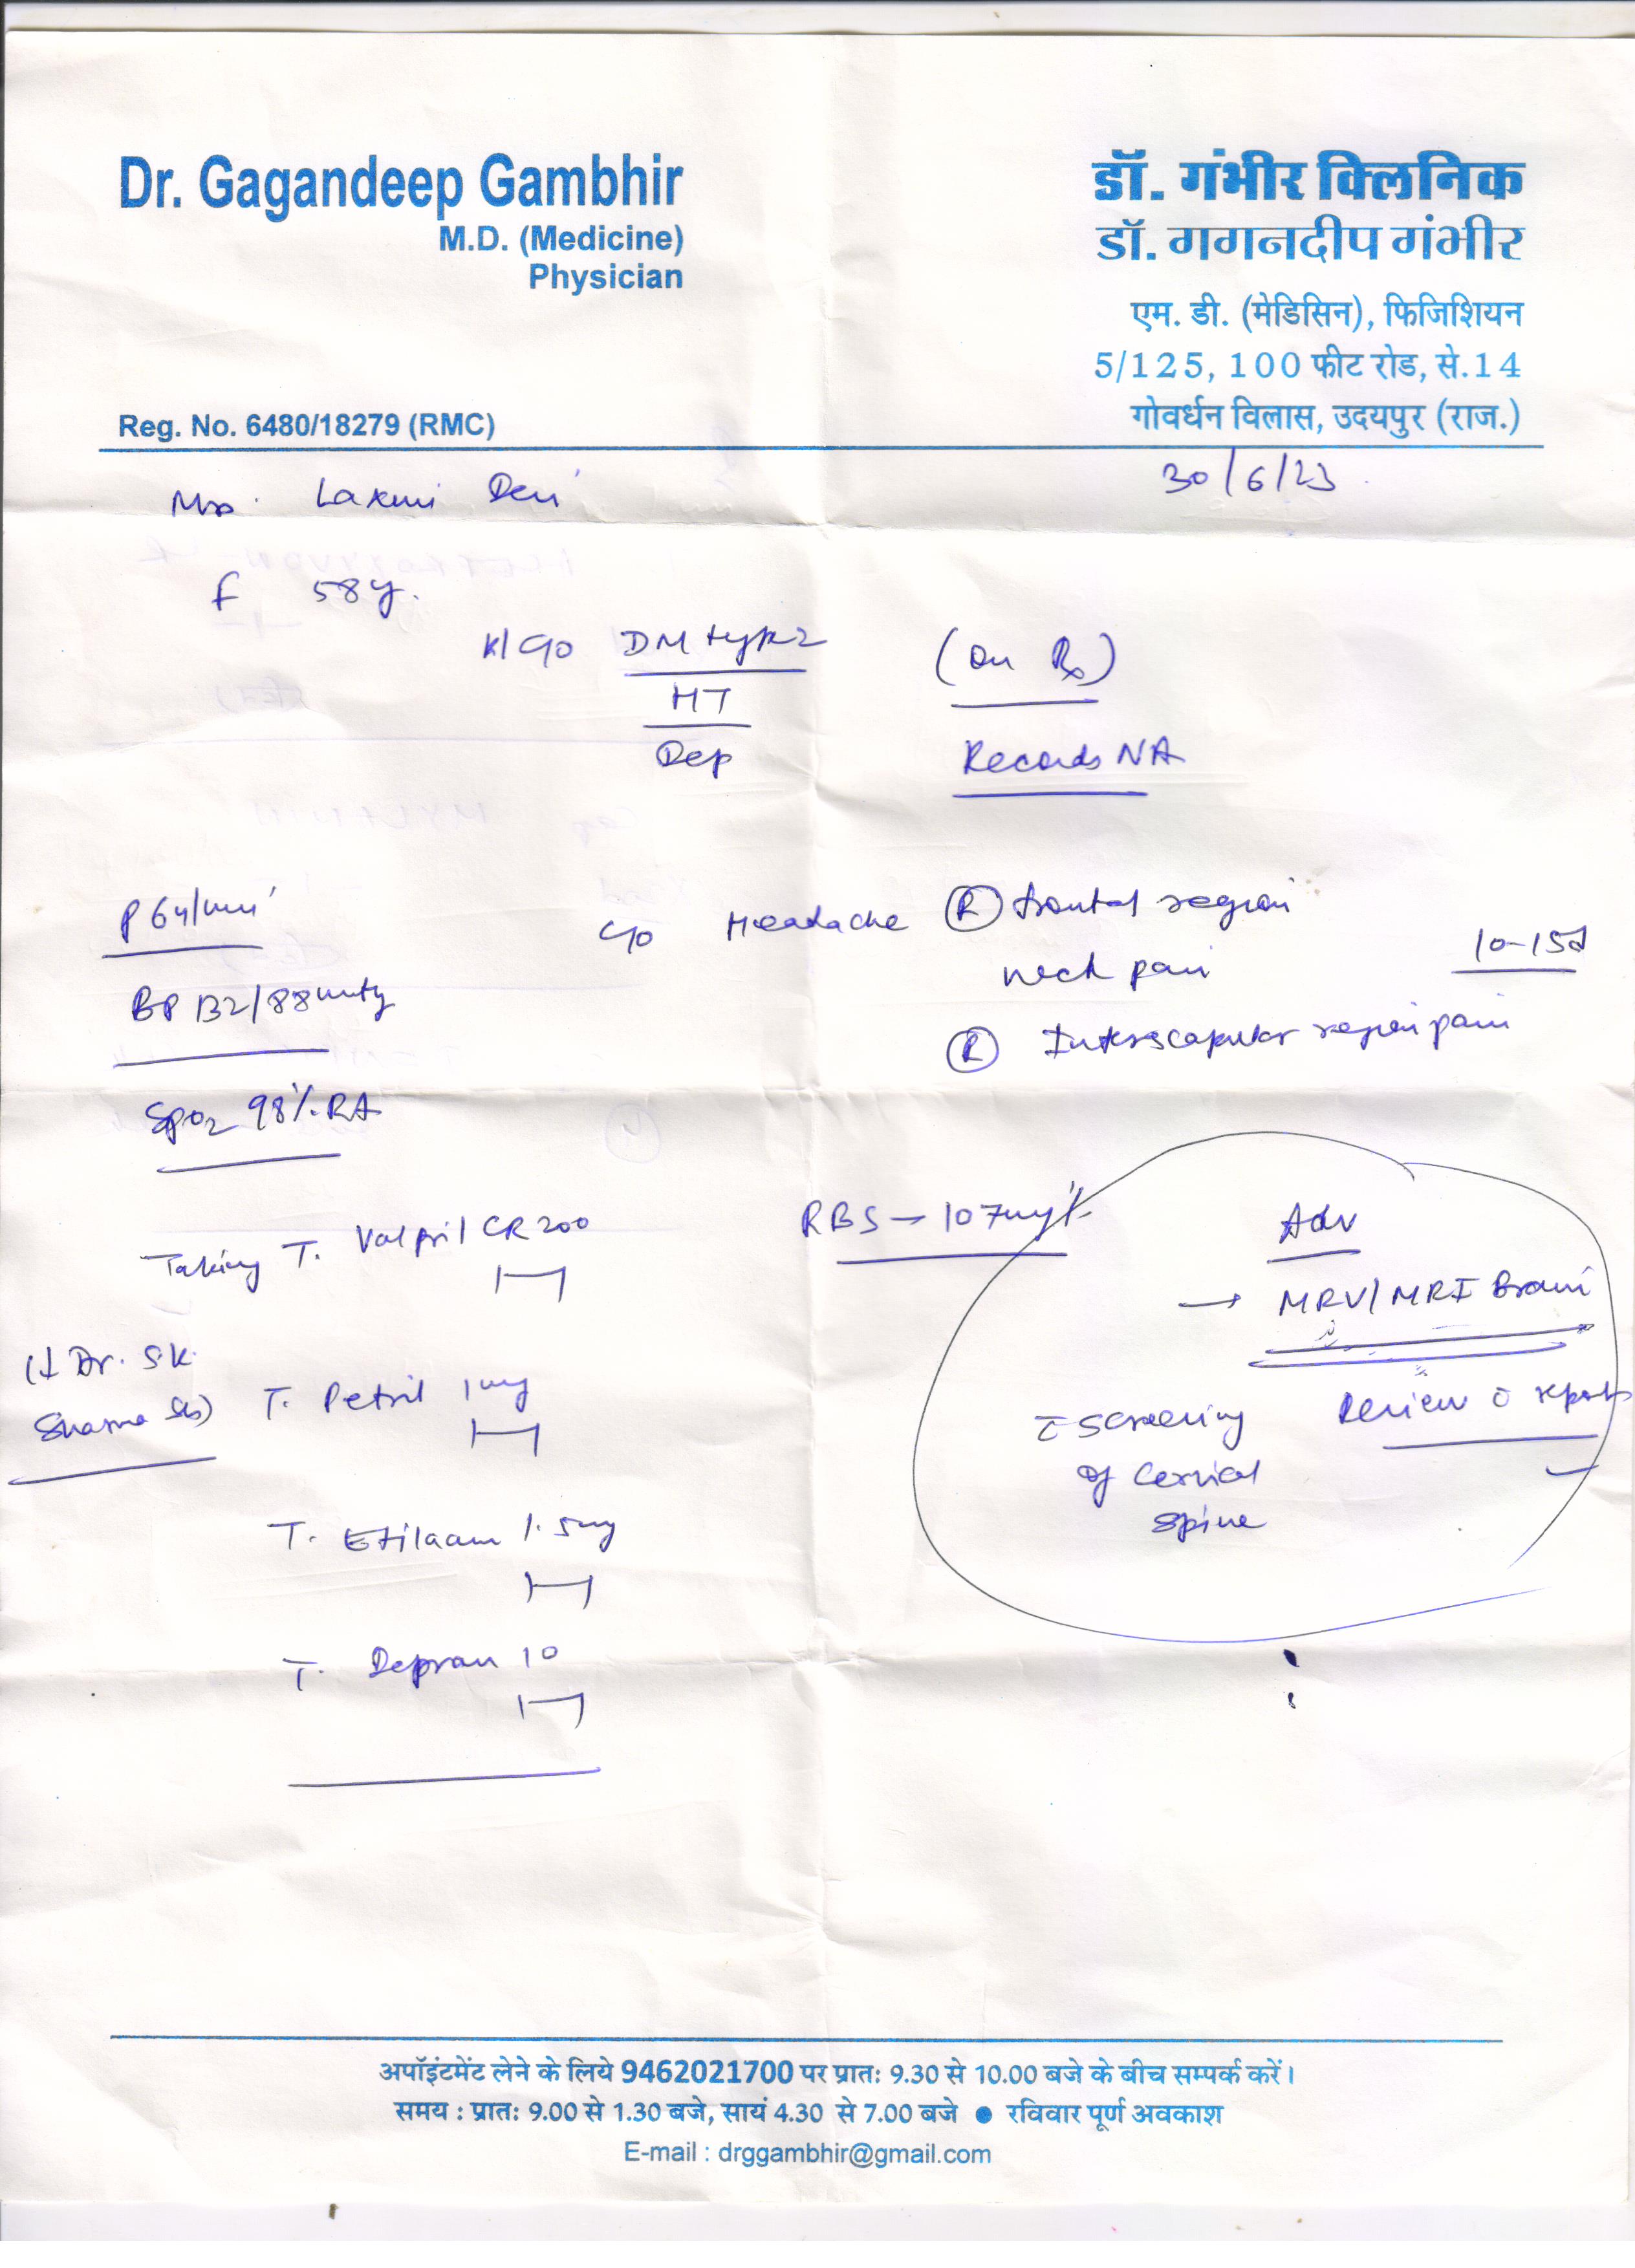 Dr. Gagandeep Gambhir
M.D. (Medicine)
Physician
Reg. No. 6480/18279 (RMC)
डॉ. गंभीर क्लिनिक
डॉ. गगनदीप गंभीर
एम. डी. (मेडिसिन), फिजिशियन
5/125, 100 फीट रोड, से.14
गोवर्धन विलास, उदयपुर (राज.)
30/6/23
Mrs. Laxmi Devi
F 58y.
K/C/O DM type 2 (on Rx)
HT
Dep
Records NA
P 64/min
BP 132/88 mmHg
SpO2 98% RA
C/O Headache (R) frontal region
neck pain
10-15d
(R) Interscapular region pain
RBS → 107 mg%
Taking T. Valpril CR 200
(↓ Dr. S.K.
Sharma Sb)
T. Petril 1mg
T. Etilaam 1.5mg
T. Depran 10
Adv
→ MRV/MRI Brain
c̄ screening
of cervical
spine
Review c̄ reports
अपॉइंटमेंट लेने के लिये 9462021700 पर प्रातः 9.30 से 10.00 बजे के बीच सम्पर्क करें।
समय : प्रातः 9.00 से 1.30 बजे, सायं 4.30 से 7.00 बजे ● रविवार पूर्ण अवकाश
E-mail : drggambhir@gmail.com